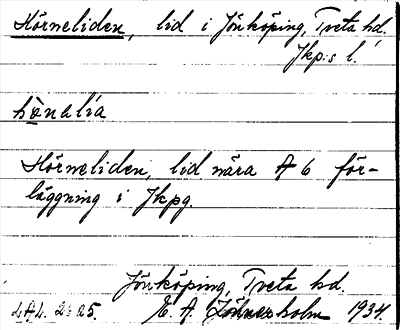 Hörneliden, lid i Jönköping, Tveta hd.
Jkp:s l.
hö̱nalia
Hörneliden, lid nära A 6 för-
läggning i Jkpg.
Jönköping, Tveta hd.
E. A. 1934.